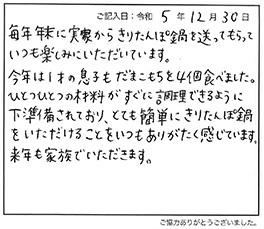 ご記入日：令和 5年12月30日
毎年年末に実家からきりたんぽ鍋を送ってもらって
いつも楽しみにいただいています。
今年は1才の息子もだまこもちを4個食べました。
ひとつひとつの材料がすぐに調理できるように
下準備されており、とても簡単にきりたんぽ鍋
をいただけることをいつもありがたく感じています。
来年も家族でいただきます。
ご協力ありがとうございました。